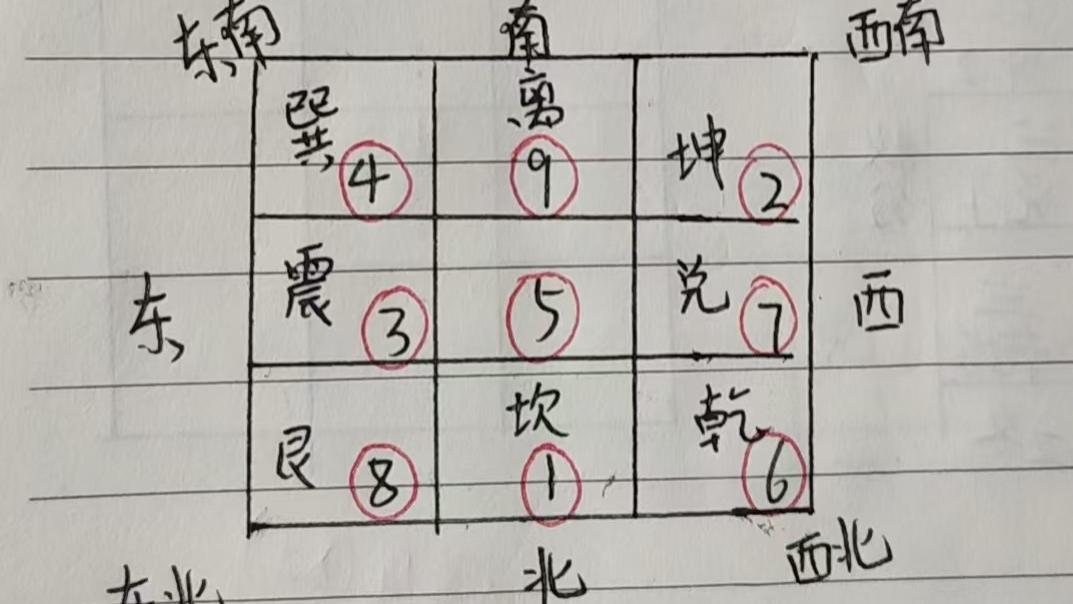 东南 南 西南
巽 离 坤
④ ⑨ ②
东 震 兑 西
③ ⑤ ⑦
艮 坎 乾
⑧ ① ⑥
东北 北 西北